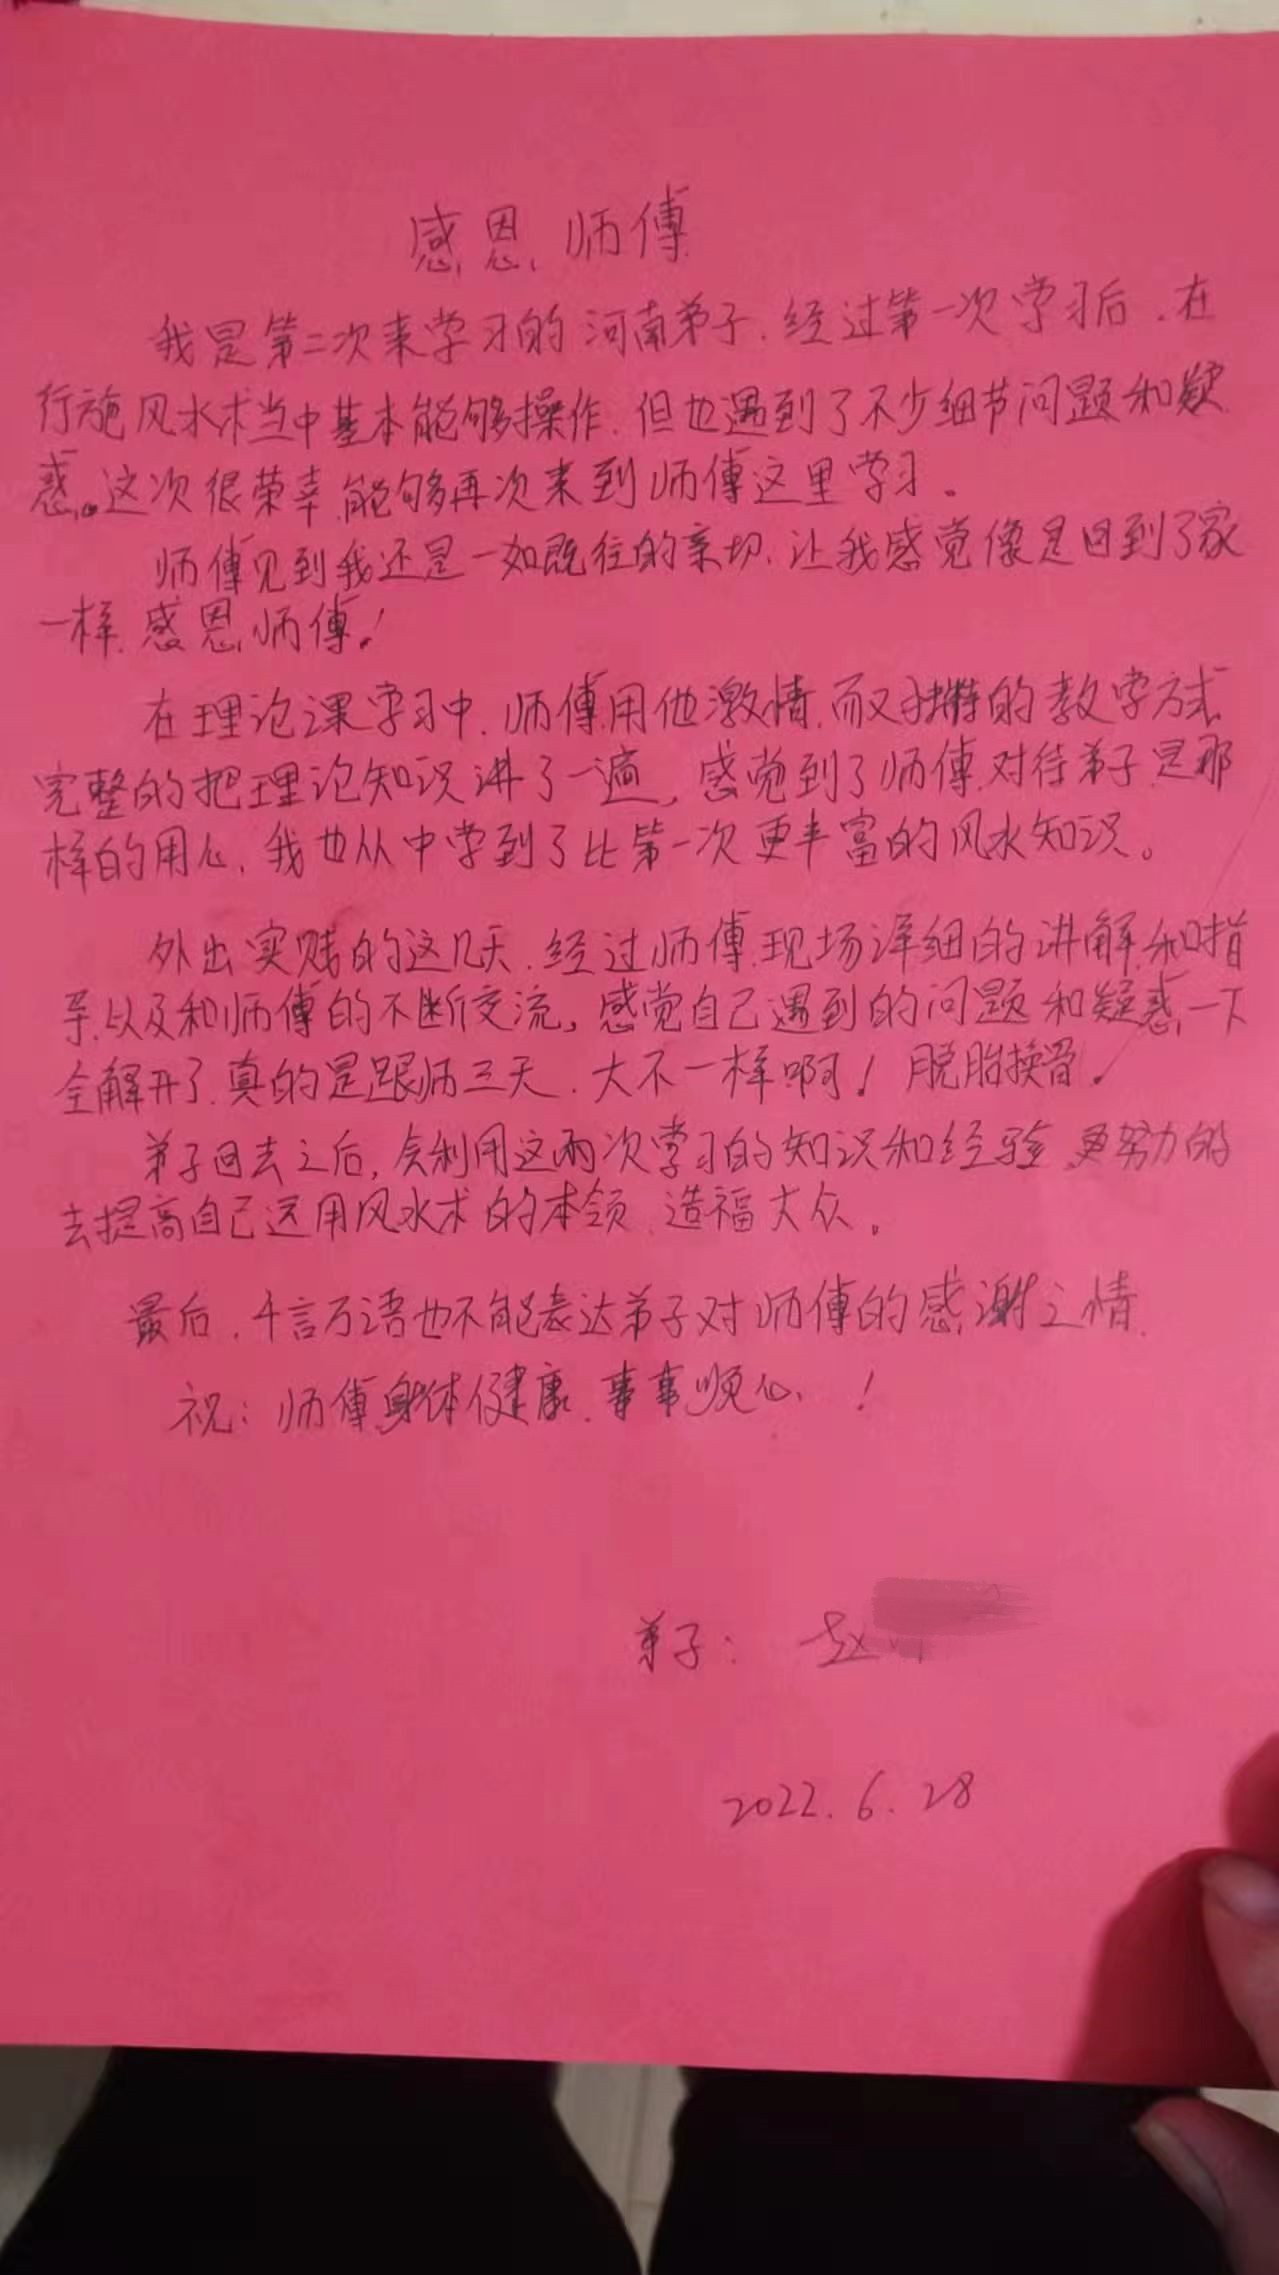 感恩师傅
我是第二次来学习的河南弟子.经过第一次学习后.在
行施风水术当中基本能够操作.但也遇到了不少细节问题和疑
惑。这次很荣幸能够再次来到师傅这里学习。
师傅见到我还是一如既往的亲切.让我感觉像是回到了家
一样.感恩师傅!
在理论课学习中.师傅用他激情.而又独特的教学方式
完整的把理论知识讲了一遍,感觉到了师傅对待弟子是那
样的用心,我也从中学到了比第一次更丰富的风水知识。
外出实践的这几天.经过师傅现场详细的讲解和指
导以及和师傅的不断交流,感觉自己遇到的问题和疑惑一下
全解开了.真的是跟师三天.大不一样啊!脱胎换骨!
弟子回去之后,会利用这两次学习的知识和经验.更努力的
去提高自己运用风水术的本领.造福大众。
最后.千言万语也不能表达弟子对师傅的感谢之情.
祝:师傅身体健康.事事顺心!
弟子:赵
2022.6.28